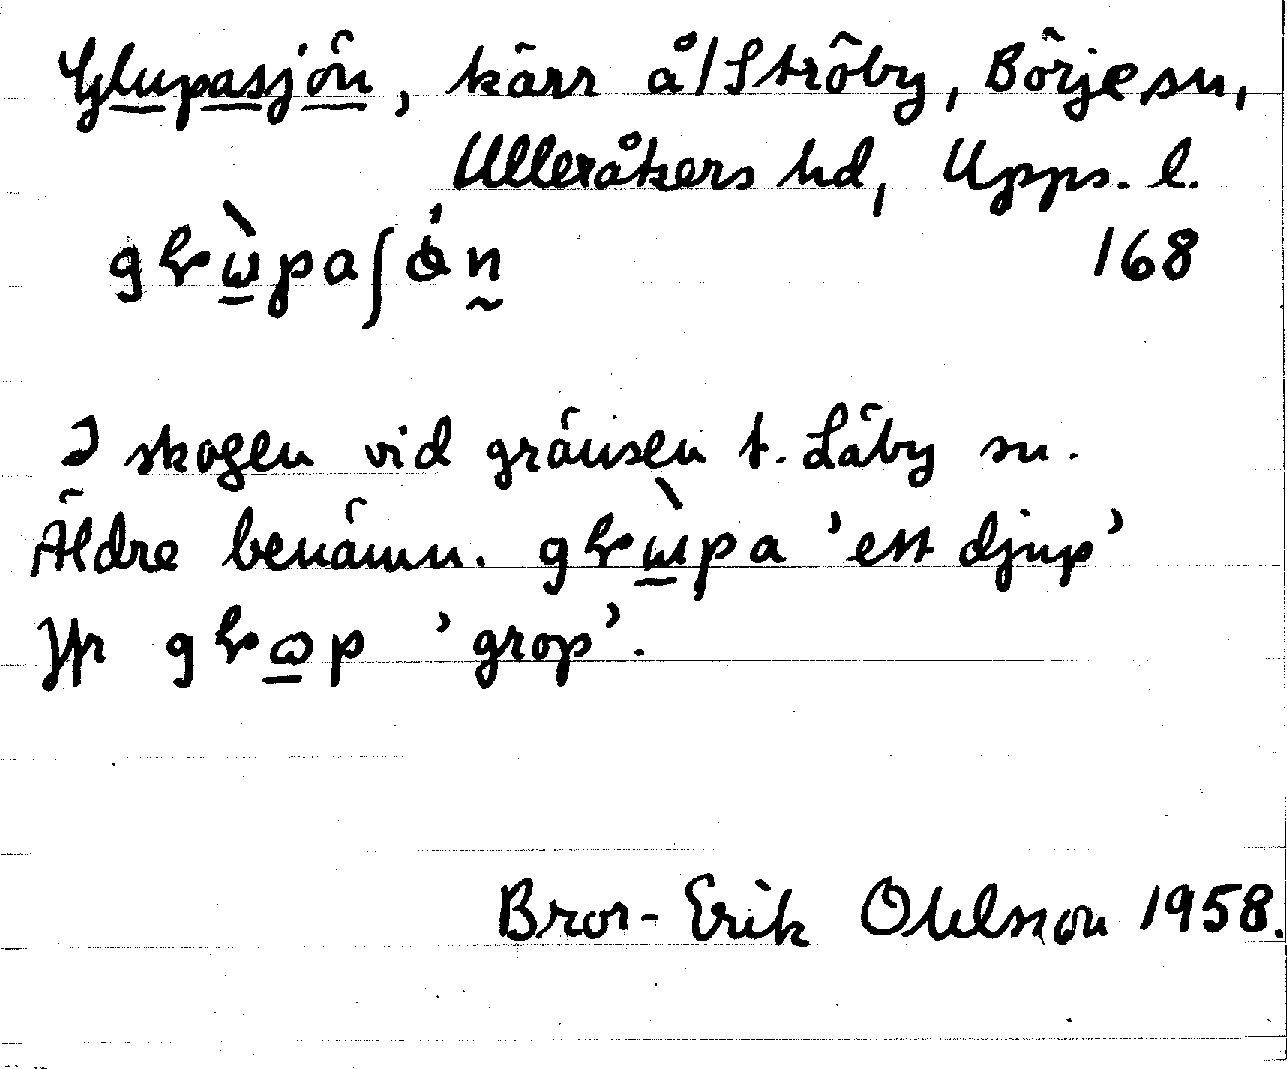 Glupasjön, kärr å/Ströby, Börje sn,
Ulleråkers hd, Upps. l.
168
I skogen vid gränsen t. Läby sn.
Äldre benämn. 'ett djup'
Jfr 'grop'.
Bror-Erik Ohlsson 1958.